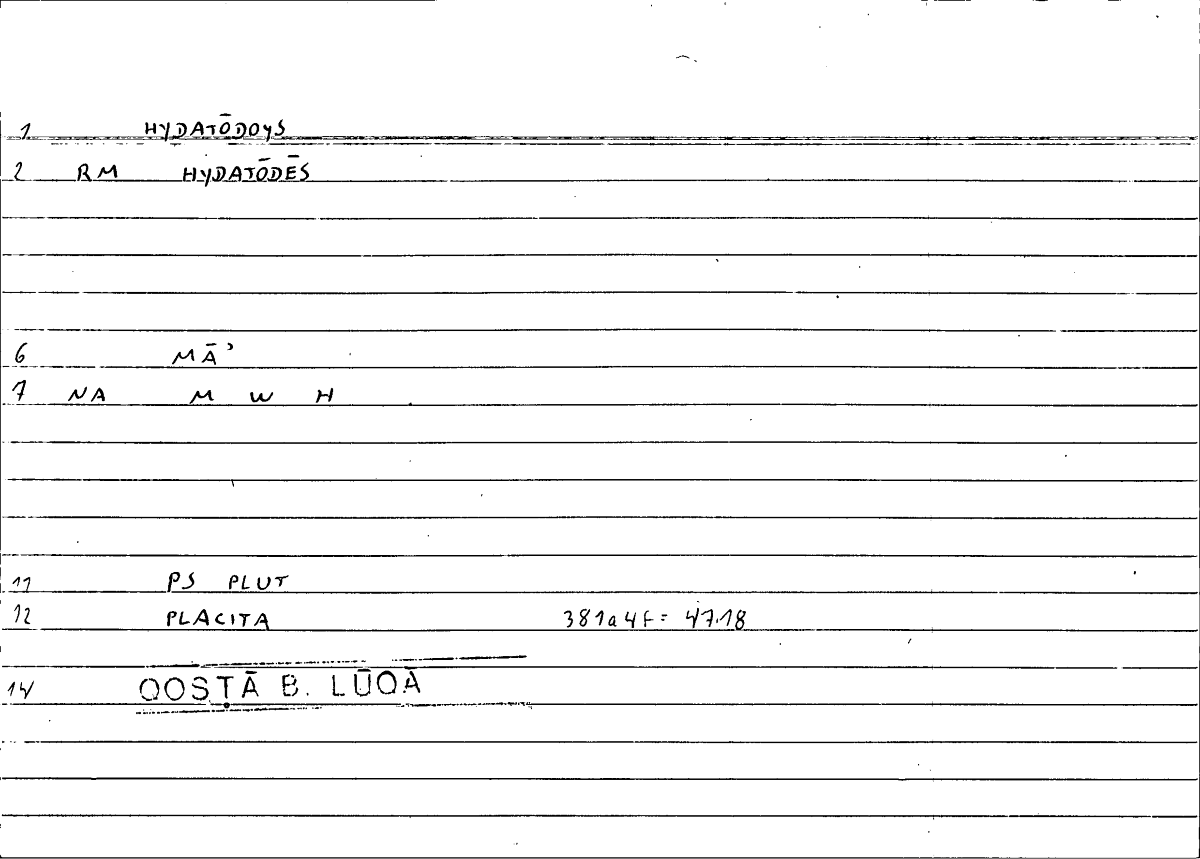 1 HYDATŌDOYS
2 RM HYDATŌDĒS
6 MĀʾ
7 NA M W H
11 PS PLUT
12 PLACITA 381a4f = 47.18
14 QOSṬĀ B. LŪQĀ